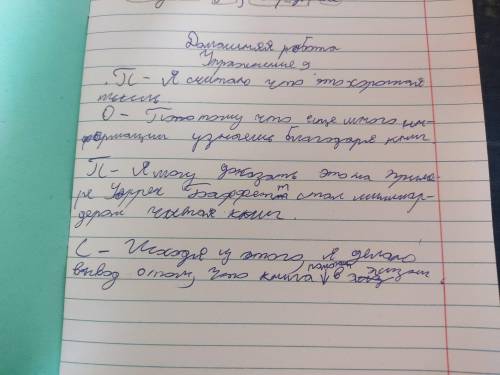 Домашняя работа
Упражнение 9
П - Я считаю что это хорошая
мысль
О - Потому что ещё много ин-
формации узнаешь благодаря книг.
П - Я могу доказать это на приме-
ре Уоррен Баффетт стал миллиар-
дером читая книг.
С - Исходя из этого, я делаю
вывод о том, что книга помогает в жизни.